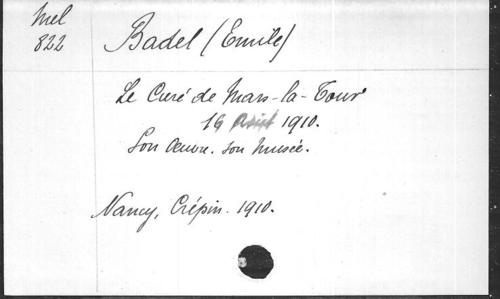 Mel
822
Badel (Emile)
Le Curé de Mars-la-Tour
16 Août 1910.
Son Œuvre. son Musée.
Nancy, Crépin. 1910.